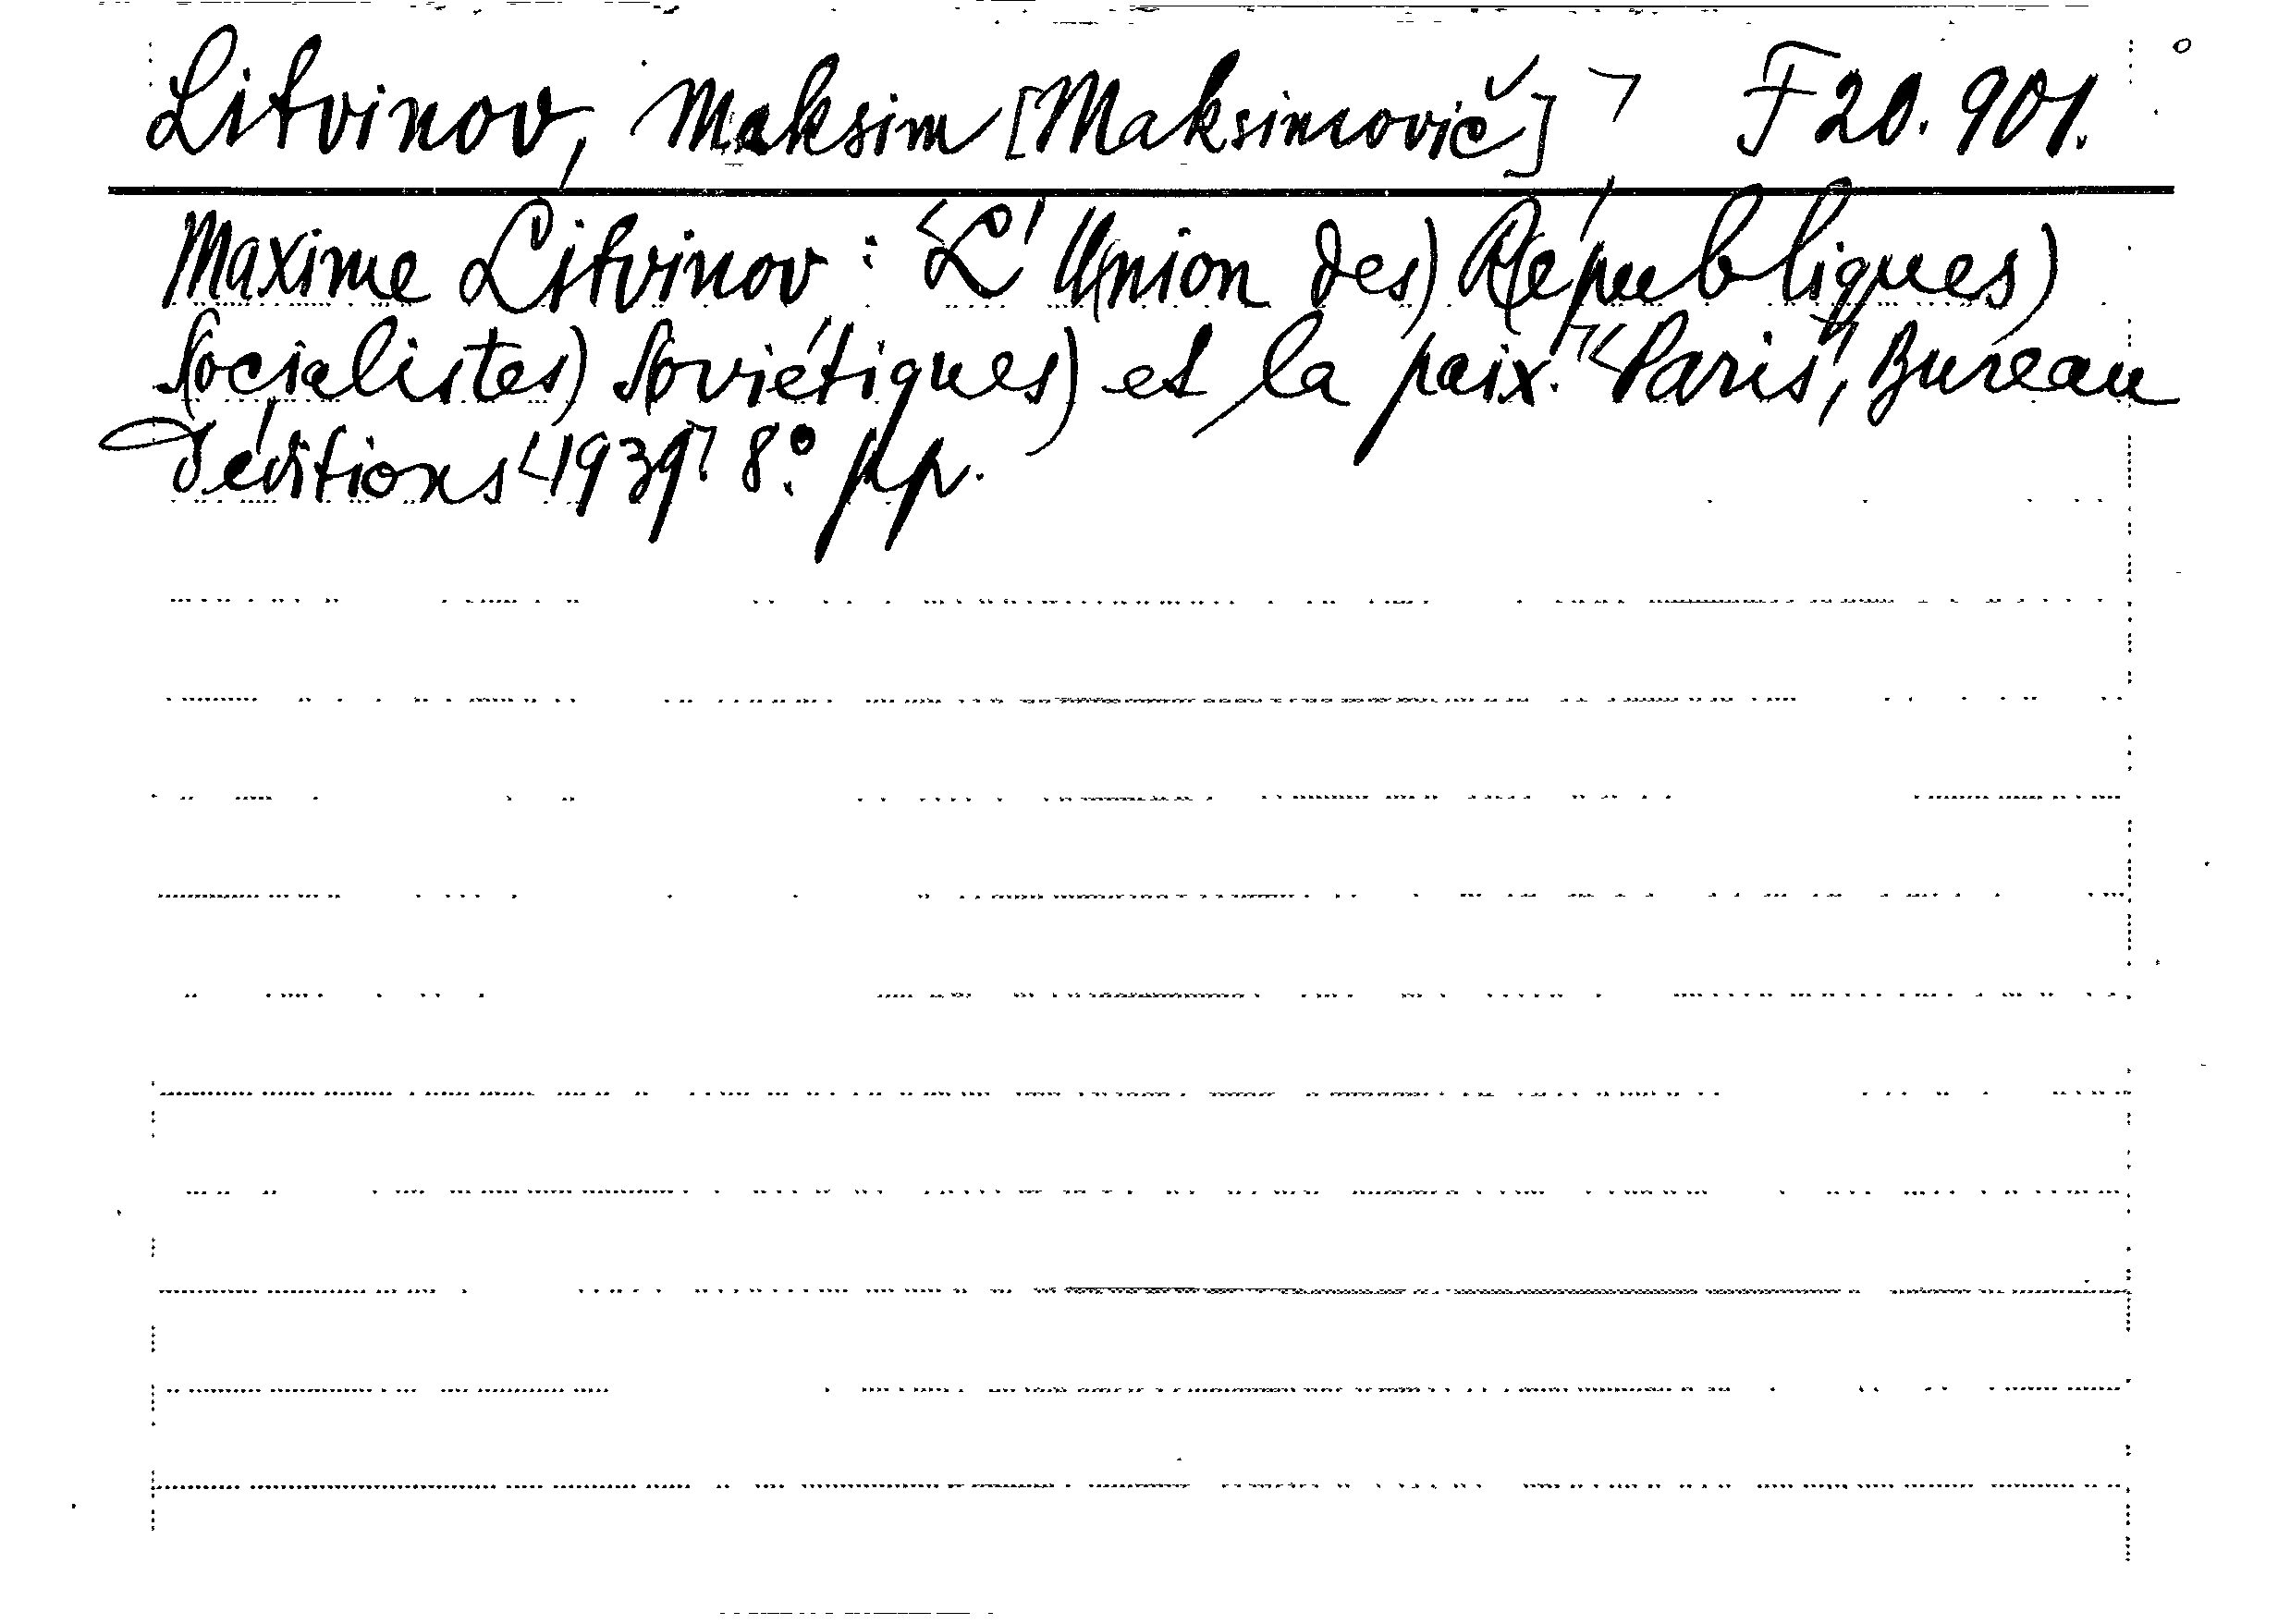 Litvinov, Maksim [Maksimovič] ⌝ F 20.901.
Maxime Litvinov: L'U(nion des) R(épubliques)
S(ocialistes) S(oviétiques) et la paix. Paris, Bureau
d'éditions 1939. 8°. pp.